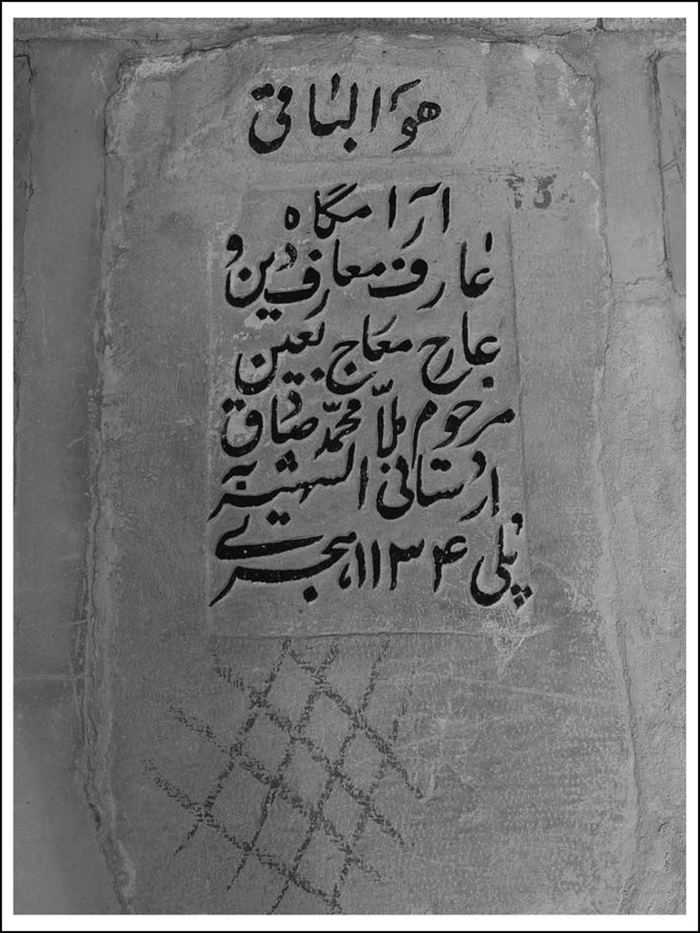 هو الباقی
آرامگاه
عارف معارف دین و
عارج معارج یقین
مرحوم ملّا محمّد صادق
اردستانی الشهیر به
پلی ۱۱۳۴ هجری